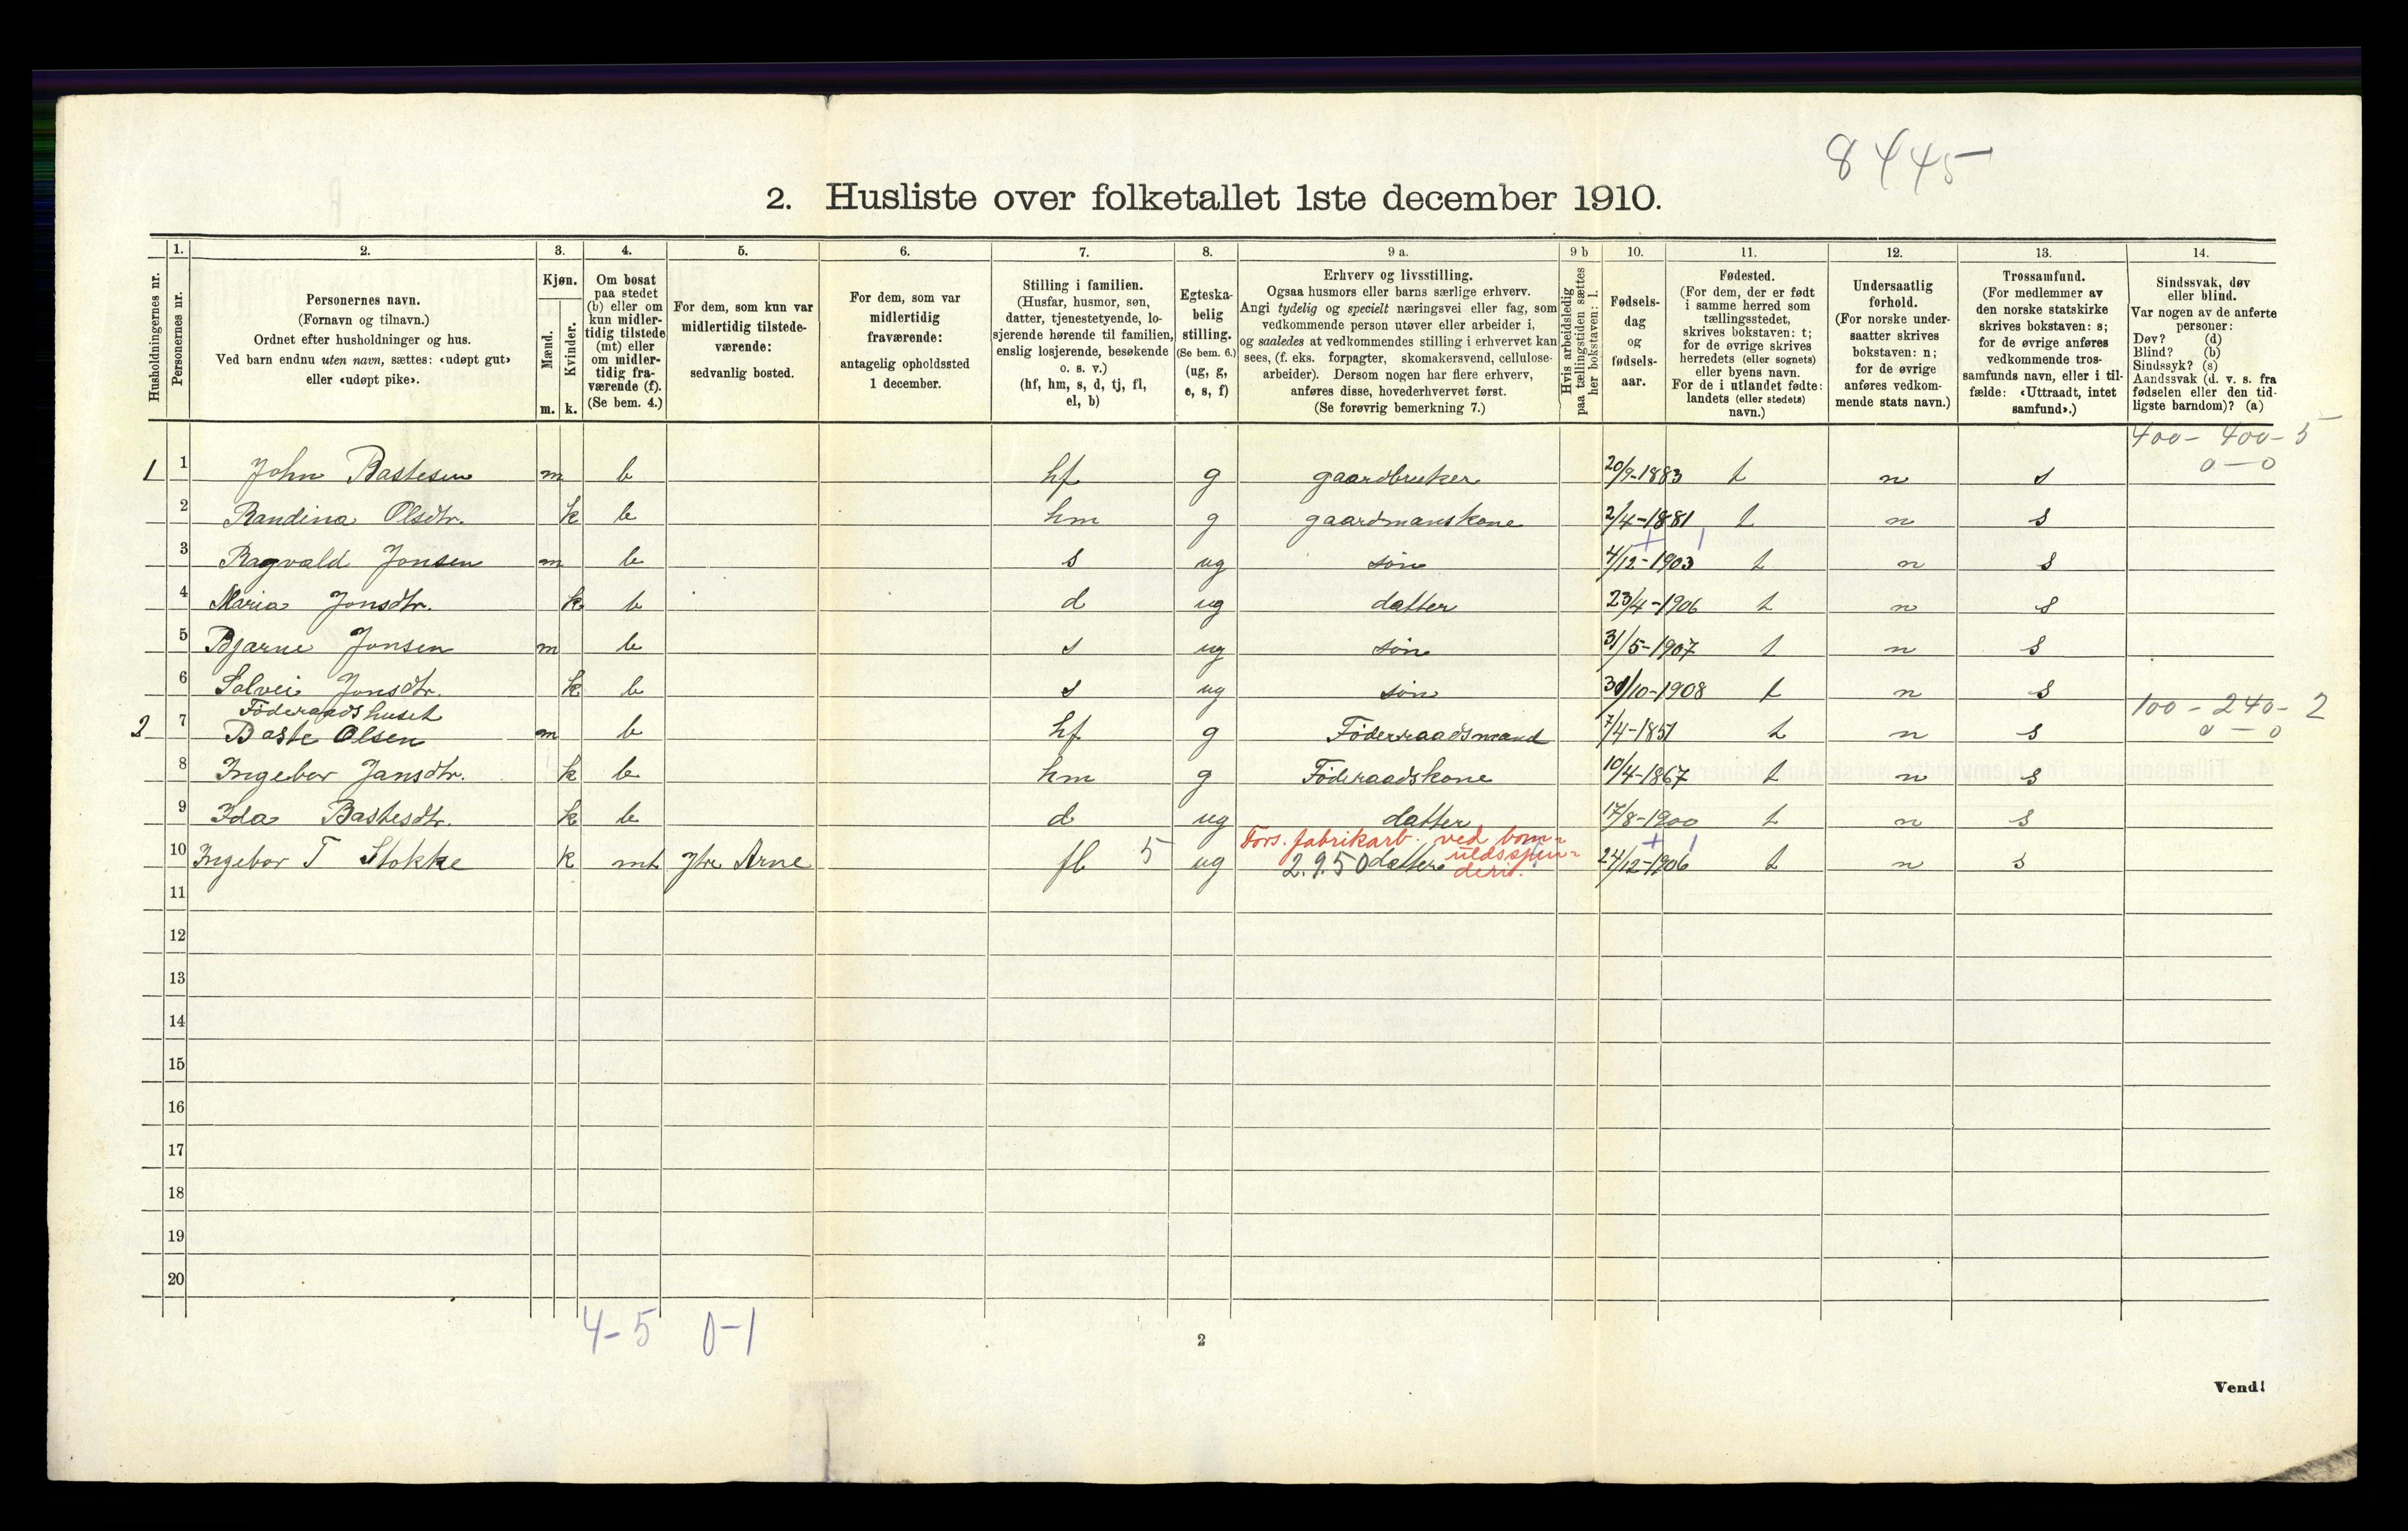 8445
2. Husliste over folketallet 1ste december 1910.
Husholdningernes nr.
1.
Personernes nr.
2.
Personernes navn.
(Fornavn og tilnavn.)
Ordnet efter husholdninger og hus.
Ved barn endnu uten navn, sættes: «udøpt gut»
eller «udøpt pike».
3.
Kjøn.
Mænd.
Kvinder.
m. k.
4.
Om bosat
paa stedet
(b) eller om
kun midler-
tidig tilstede
(mt) eller
om midler-
tidig fra-
værende (f).
(Se bem. 4.)
5.
For dem, som kun var
midlertidig tilstede-
værende:
sedvanlig bosted.
6.
For dem, som var
midlertidig
fraværende:
antagelig opholdssted
1 december.
7.
Stilling i familien.
(Husfar, husmor, søn,
datter, tjenestetyende, lo-
sjerende hørende til familien,
enslig losjerende, besøkende
o. s. v.)
(hf, hm, s, d, tj, fl,
el, b)
8.
Egteska-
belig
stilling.
(Se bem. 6.)
(ug, g,
e, s, f)
9 a.
Erhverv og livsstilling.
Ogsaa husmors eller barns særlige erhverv.
Angi tydelig og specielt næringsvei eller fag, som
vedkommende person utøver eller arbeider i,
og saaledes at vedkommendes stilling i erhvervet kan
sees, (f. eks. forpagter, skomakersvend, cellulose-
arbeider). Dersom nogen har flere erhverv,
anføres disse, hovederhvervet først.
(Se forøvrig bemerkning 7.)
9 b
Hvis arbeidsledig
paa tællingstiden sættes
her bokstaven: l.
10.
Fødsels-
dag
og
fødsels-
aar.
11.
Fødested.
(For dem, der er født
i samme herred som
tællingsstedet,
skrives bokstaven: t;
for de øvrige skrives
herredets (eller sognets)
eller byens navn.
For de i utlandet fødte:
landets (eller stedets)
navn.)
12.
Undersaatlig
forhold.
(For norske under-
saatter skrives
bokstaven: n;
for de øvrige
anføres vedkom-
mende stats navn.)
13.
Trossamfund.
(For medlemmer av
den norske statskirke
skrives bokstaven: s;
for de øvrige anføres
vedkommende tros-
samfunds navn, eller i til-
fælde: «Uttraadt, intet
samfund».)
14.
Sindssvak, døv
eller blind.
Var nogen av de anførte
personer:
Døv? (d)
Blind? (b)
Sindssyk? (s)
Aandssvak (d. v. s. fra
fødselen eller den tid-
ligste barndom)? (a)
400 - 400 - 5
0 - 0
1 1 John Bastesen m b hf g gaardbruker 20/9-1883 t n s
2 Randina Olsdtr. k b hm g gaardmanskone 2/4-1881 t n s
3 Ragvald Jonsen m b s ug søn 4/12-1903 t n s
4 Maria Jonsdtr. k b d ug datter 23/4-1906 t n s
5 Bjarne Jonsen m b s ug søn 31/5-1907 t n s
6 Solvei Jonsdtr. k b s ug søn 30/10-1908 t n s
Föderaadshuset
100 - 240 - 2
0 - 0
2 7 Baste Olsen m b hf g Föderraadsmand 7/4-1851 t n s
8 Ingebor Jansdtr. k b hm g Föderaadskone 10/4-1867 t n s
9 Ida Bastesdtr. k b d ug datter 17/8-1900 t n s
Fors. fabrikarb. ved bom-
uldsspin-
deri.
10 Ingebor T Stokke k mt Ytre Arne fl 5 ug 2.9.50 datter 24/12-1906 t n s
11
12
13
14
15
16
17
18
19
20
4-5 0-1
2
Vend!